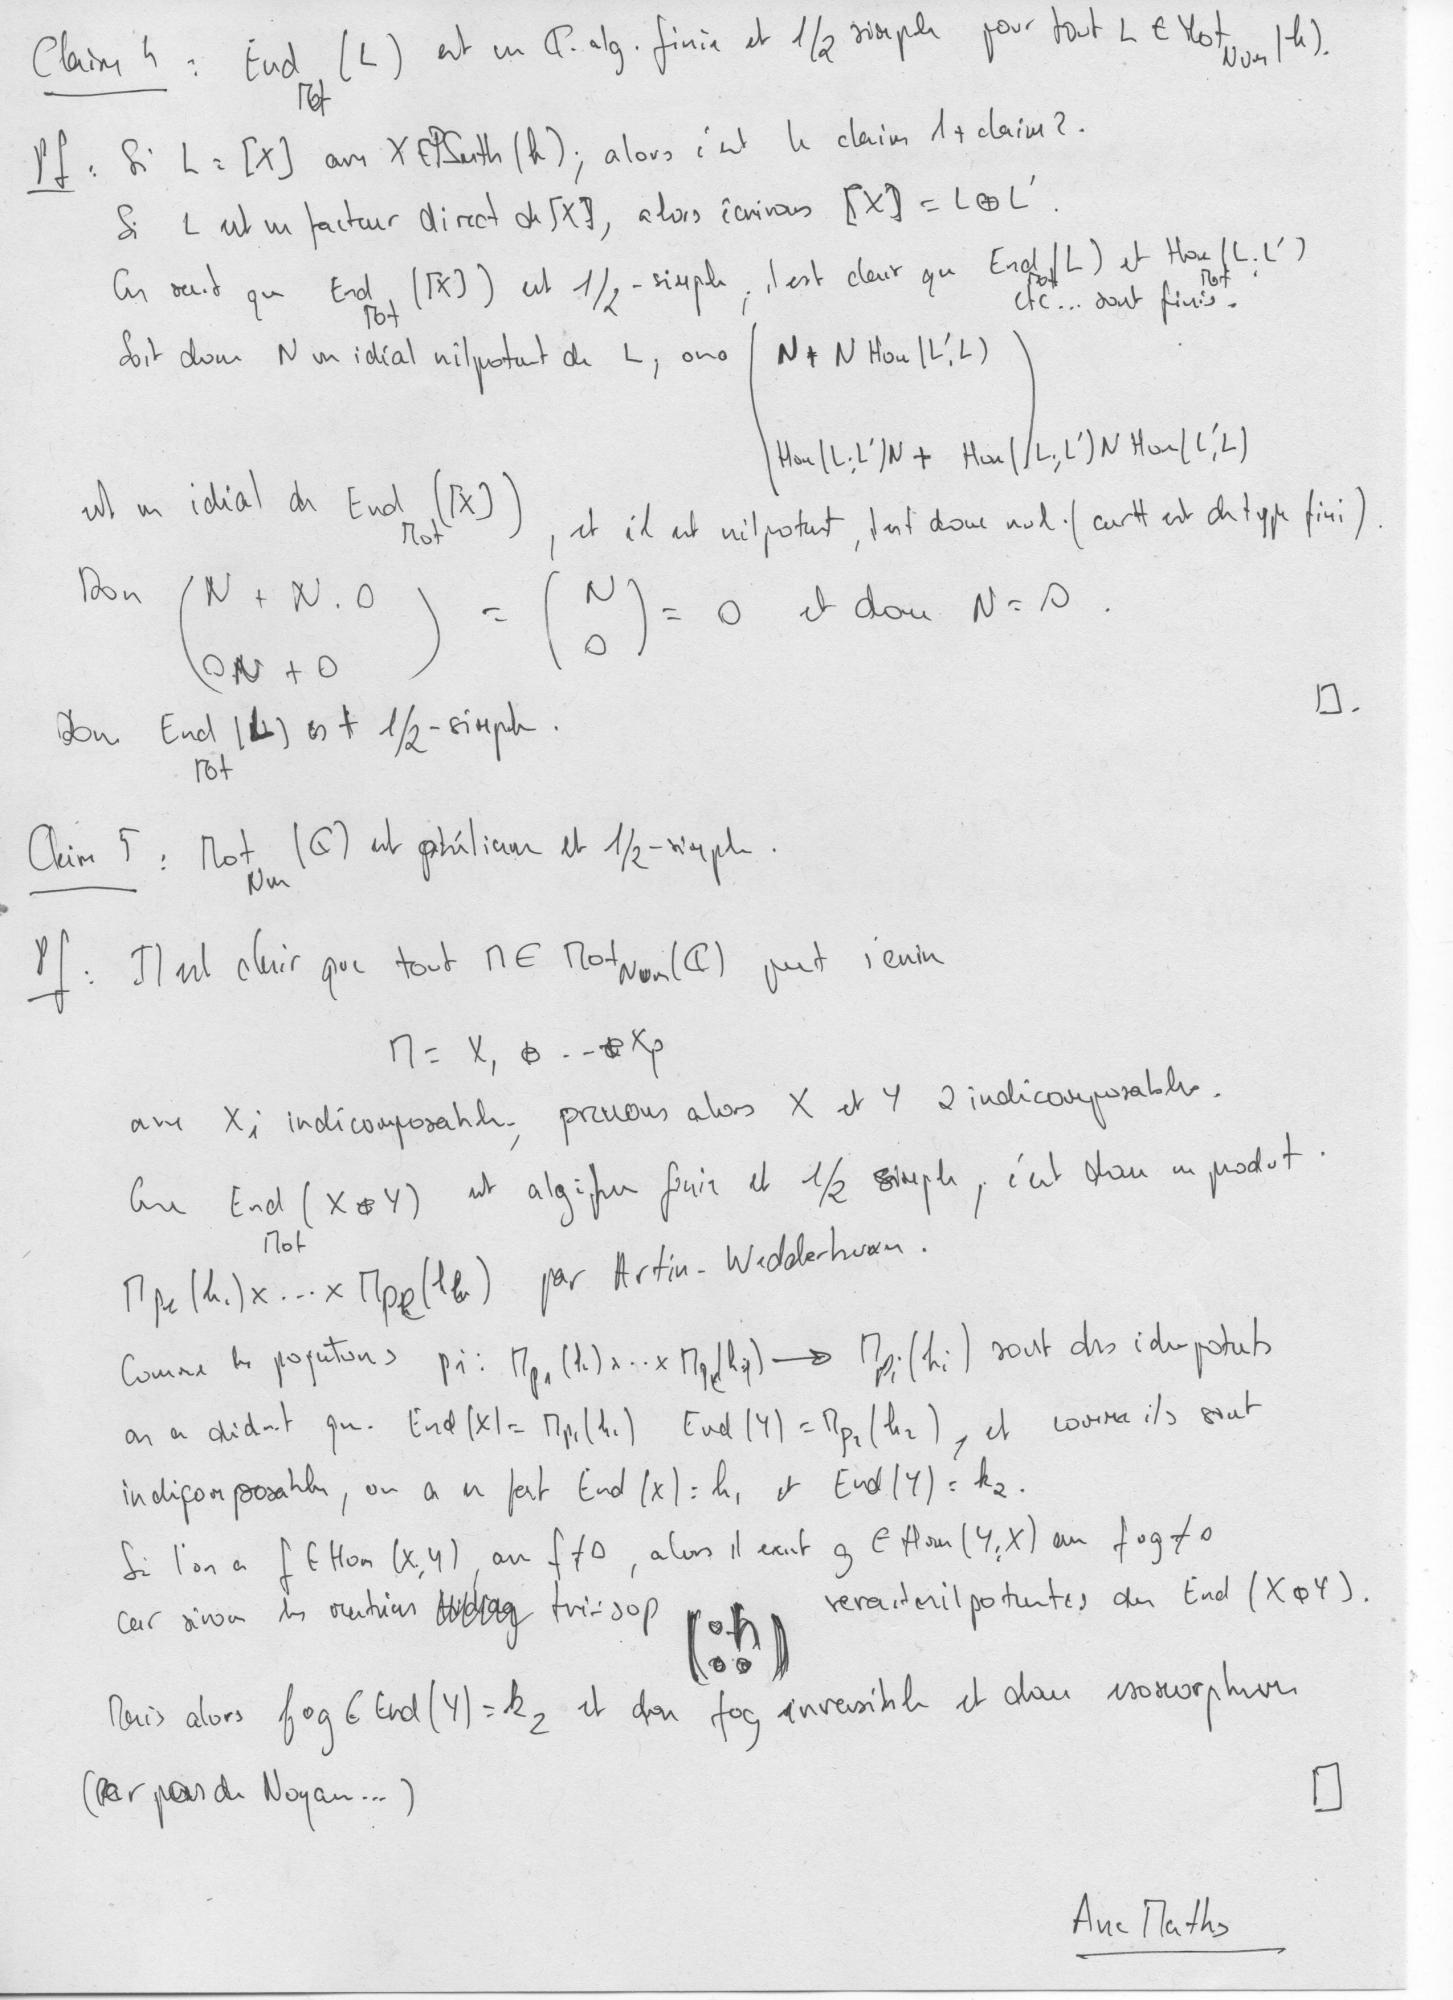 Claim 4 : End (L) est un Q-alg. finie et 1/2 simple pour tout L ∈ Mot_Num(k).
Mot
Pf : Si L = [X] avec X ∈ PSmth(k), alors c'est le claim 1 + claim 2.
Si L est un facteur direct de [X], alors écrivons [X] = L ⊕ L'.
On sait que End_Mot([X]) est 1/2-simple, il est clair que End_Mot(L) et Hom_Mot(L, L')
etc... sont finis.
Soit donc N un idéal nilpotent de L, on a ( N + N Hom(L', L)
Hom(L, L')N + Hom(L, L') N Hom(L', L) )
est un idéal de End_Mot([X]), et il est nilpotent, il est donc nul. (car est de type fini).
Donc (N + N.0
0N + 0) = (N
0) = 0 et donc N = 0.
Donc End_Mot(L) est 1/2-simple. □.
Claim 5 : Mot_Num(C) est abélienne et 1/2-simple.
Pf : Il est clair que tout M ∈ Mot_Num(C) peut s'écrire
M = X₁ ⊕ ... ⊕ Xp
avec Xi indécomposable, prenons alors X et Y 2 indécomposables.
End_Mot(X ⊕ Y) est algèbre finie et 1/2 simple, c'est donc un produit.
M_p₁(k₁) x ... x M_pk(kk) par Artin-Wedderburn.
Comme les projections pi : M_p₁(k₁) x ... x M_pk(kk) → M_pi(ki) sont des idempotents
on a que End(X) = M_p₁(k₁) End(Y) = M_p₂(k₂), et comme ils sont
indécomposable, on a en fait End(X) = k₁ et End(Y) = k₂.
Si l'on a f ∈ Hom(X, Y) avec f ≠ 0, alors il existe g ∈ Hom(Y, X) avec f∘g ≠ 0
car sinon les matrices tri-sup (0 h
0 0) nilpotentes dans End(X ⊕ Y).
Mais alors f∘g ∈ End(Y) = k₂ et donc f∘g inversible et donc isomorphisme
(car pas de Noyau...) □
Ane Maths